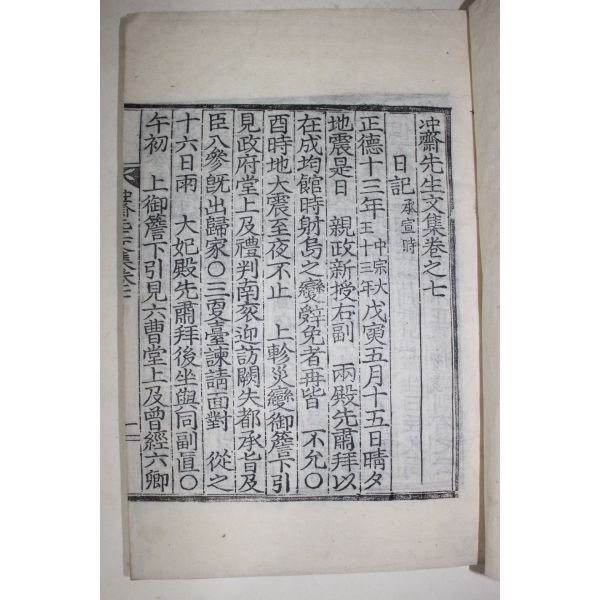 冲齋先生文集卷之七
日記 承宣時
正德十三年 中宗大王十三年 戊寅五月十五日晴夕
地震是日 親政新授右副 兩殿先肅拜以
在成均館時射烏之變辭免者再皆 不允○
酉時地大震至夜不止 上軫災變御簷下引
見政府堂上及禮判南袞迎訪闕失都承旨及
臣入參旣出歸家○三更臺諫請面對 從之
十六日雨 大妃殿先肅拜後坐與同副直○
午初 上御簷下引見六曹堂上及曾經六卿